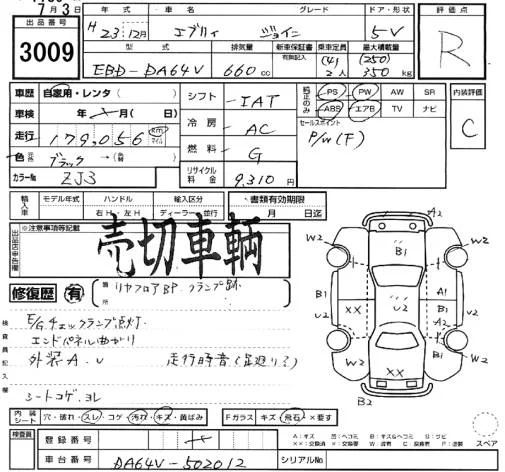 7月3日
出品番号 年式 車名 グレード ドア・形状 評価点
3009 H23 12月 エブリィ ジョイン 5V R
型式 排気量 新車保証書 乗車定員 最大積載量
有無記入 (4) (250)
EBD-DA64V 660cc 2人 350kg
車歴 自家用・レンタ( ) シフト IAT 純正のみ PS PW AW SR 内装評価
車検 年 月( 日) 冷房 AC ABS エアB TV ナビ C
セールスポイント
走行 179,056 km マイル 燃料 G P/W(F)
色 元色 ブラック →(色替 )
カラーNo ZJ3 リサイクル料金 9,310円
輸入車 モデル年式 ハンドル 輸入区分 書類有効期限
右H・左H ディーラー・並行 月 日迄
出品店申告欄 ※注意事項等記載
売切車輌
修復歴 有 箇所 リヤフロアBP クランプ跡
検査員記入欄
E/Gチェックランプ点灯
エンドパネル曲がり
外装A.U 走行時音(足廻り?)
シートコゲ.ヨレ
A2
W2 B1 W2
B1 XX U2 A1 B1
U2 W2
W2 XX
B2
スペア
内装シート 穴・破れ・スレ・コゲ・汚れ・キズ・黄ばみ Fガラス キズ・飛石・×要す
検査員 登録番号
車台番号 DA64V-502012 シリアルNo.